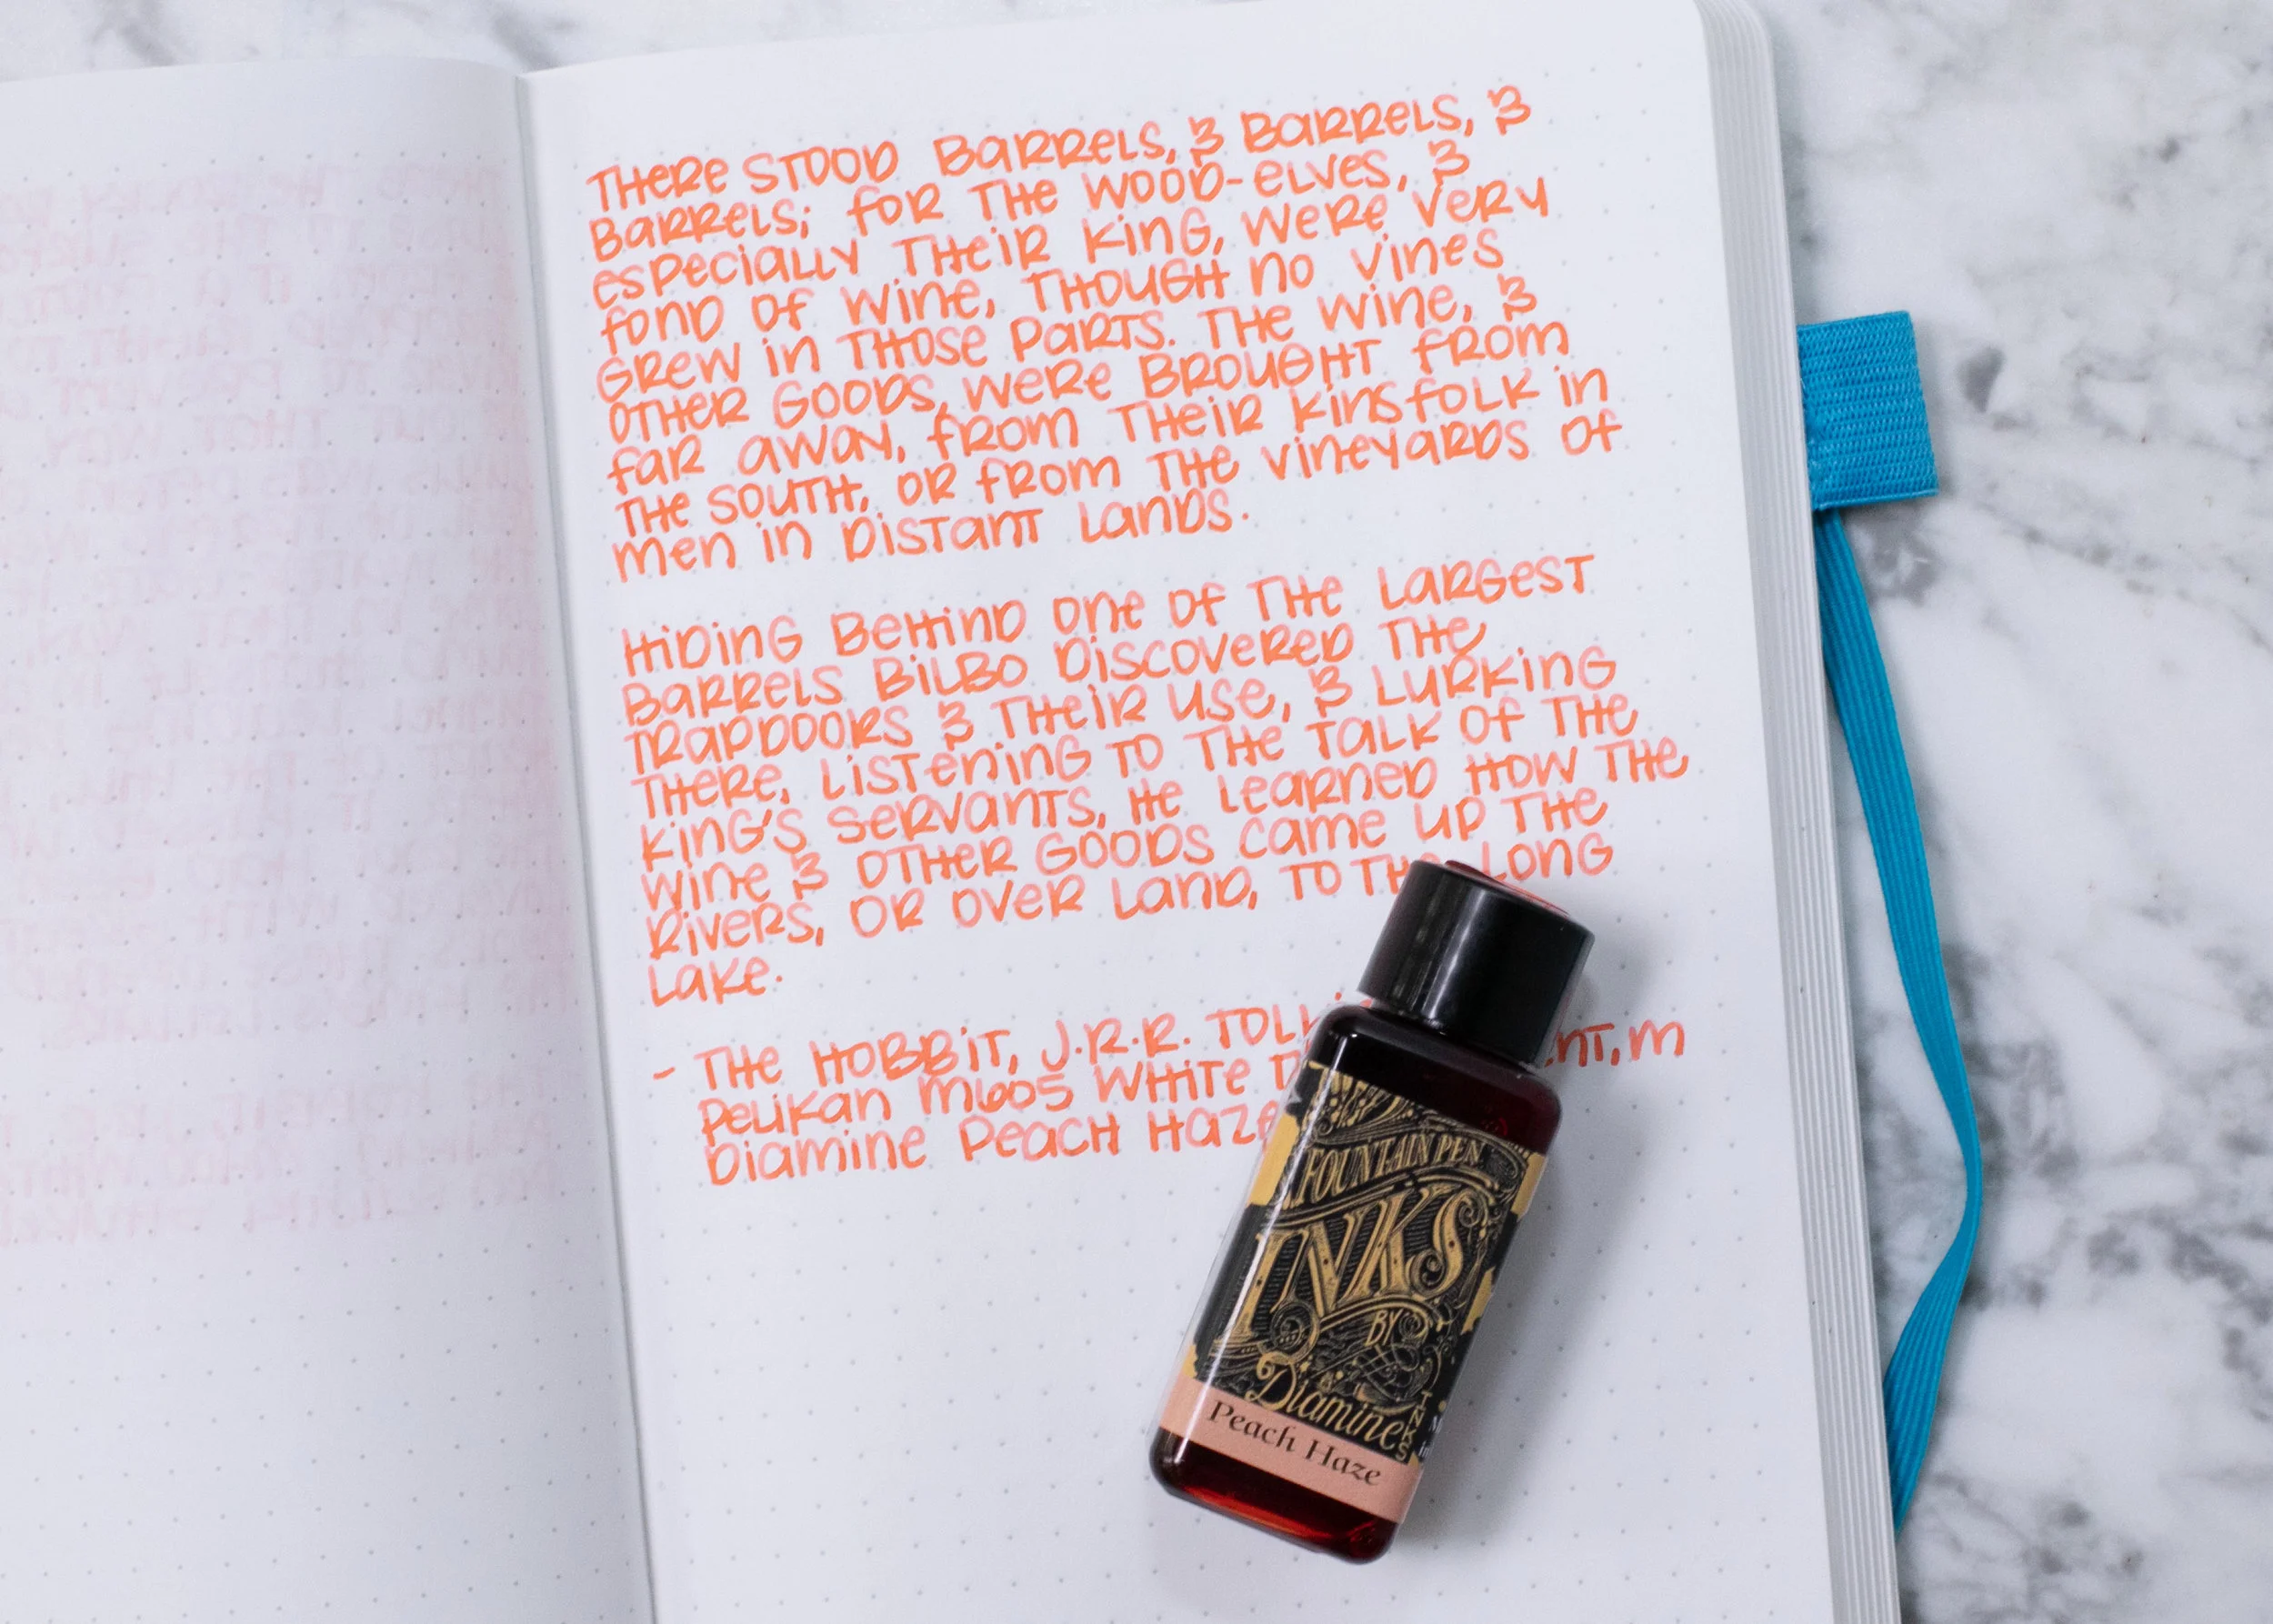 THERE STOOD BARRELS, & BARRELS, &
BARRELS; FOR THE WOOD-ELVES, &
ESPECIALLY THEIR KING, WERE VERY
FOND OF WINE, THOUGH NO VINES
GREW IN THOSE PARTS. THE WINE, &
OTHER GOODS, WERE BROUGHT FROM
FAR AWAY, FROM THEIR KINSFOLK IN
THE SOUTH, OR FROM THE VINEYARDS OF
MEN IN DISTANT LANDS.
HIDING BEHIND ONE OF THE LARGEST
BARRELS BILBO DISCOVERED THE
TRAPDOORS & THEIR USE, & LURKING
THERE, LISTENING TO THE TALK OF THE
KING'S SERVANTS, HE LEARNED HOW THE
WINE & OTHER GOODS CAME UP THE
RIVERS, OR OVER LAND, TO THE LONG
LAKE.
- THE HOBBIT, J.R.R. M
PELIKAN M605 WHITE
DIAMINE PEACH HAZE
FOUNTAIN PEN
INKS
BY
Diamine
INKS
Peach Haze